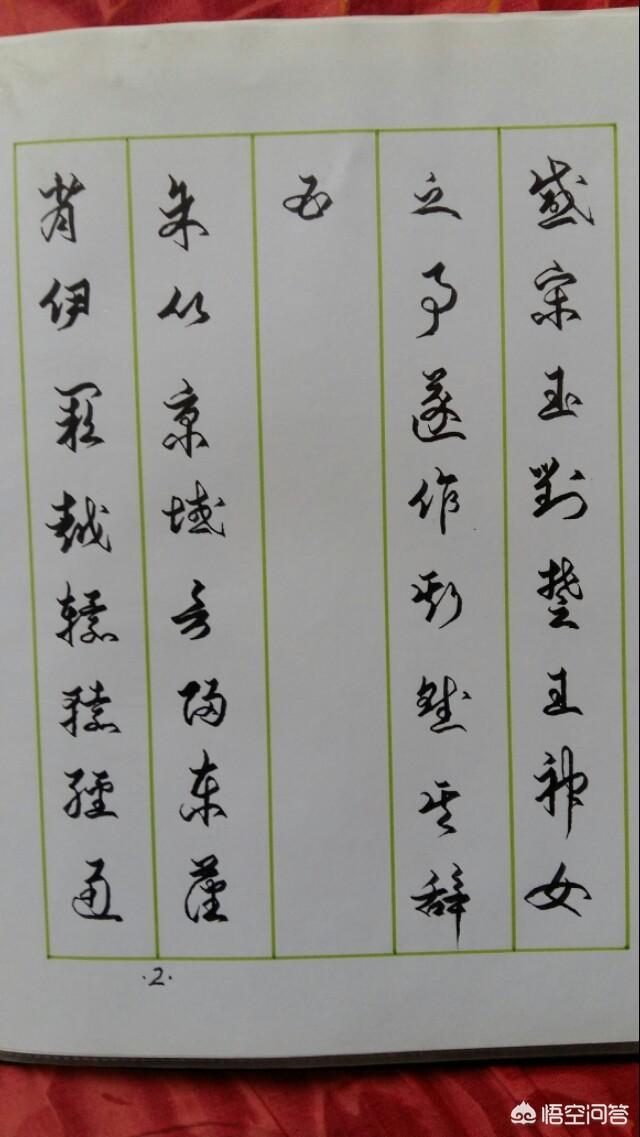 感宋玉對楚王神女
之事遂作斯賦其辭
曰
余从京域言歸東藩
背伊闕越轘轅經通
·2·
悟空问答